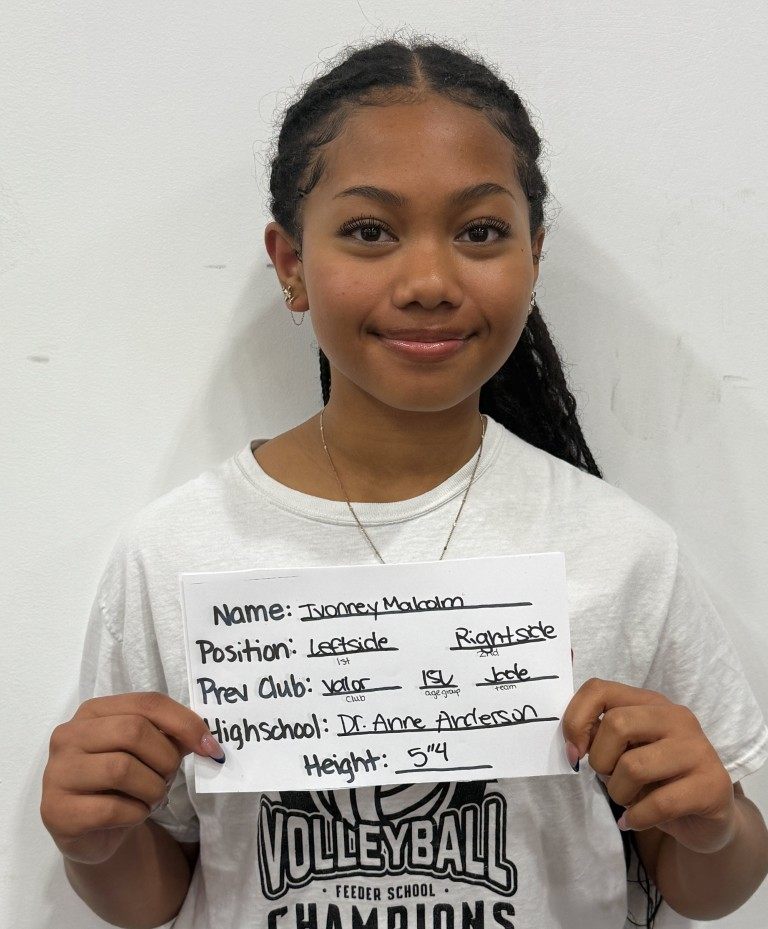 Name: Ivonney Malcolm
Position: Leftside Rightside
1st 2nd
Prev Club: Valor 15U Jade
Club age group team
Highschool: Dr. Anne Anderson
Height: 5"4
VOLLEYBALL
• FEEDER SCHOOL •
CHAMPIONS